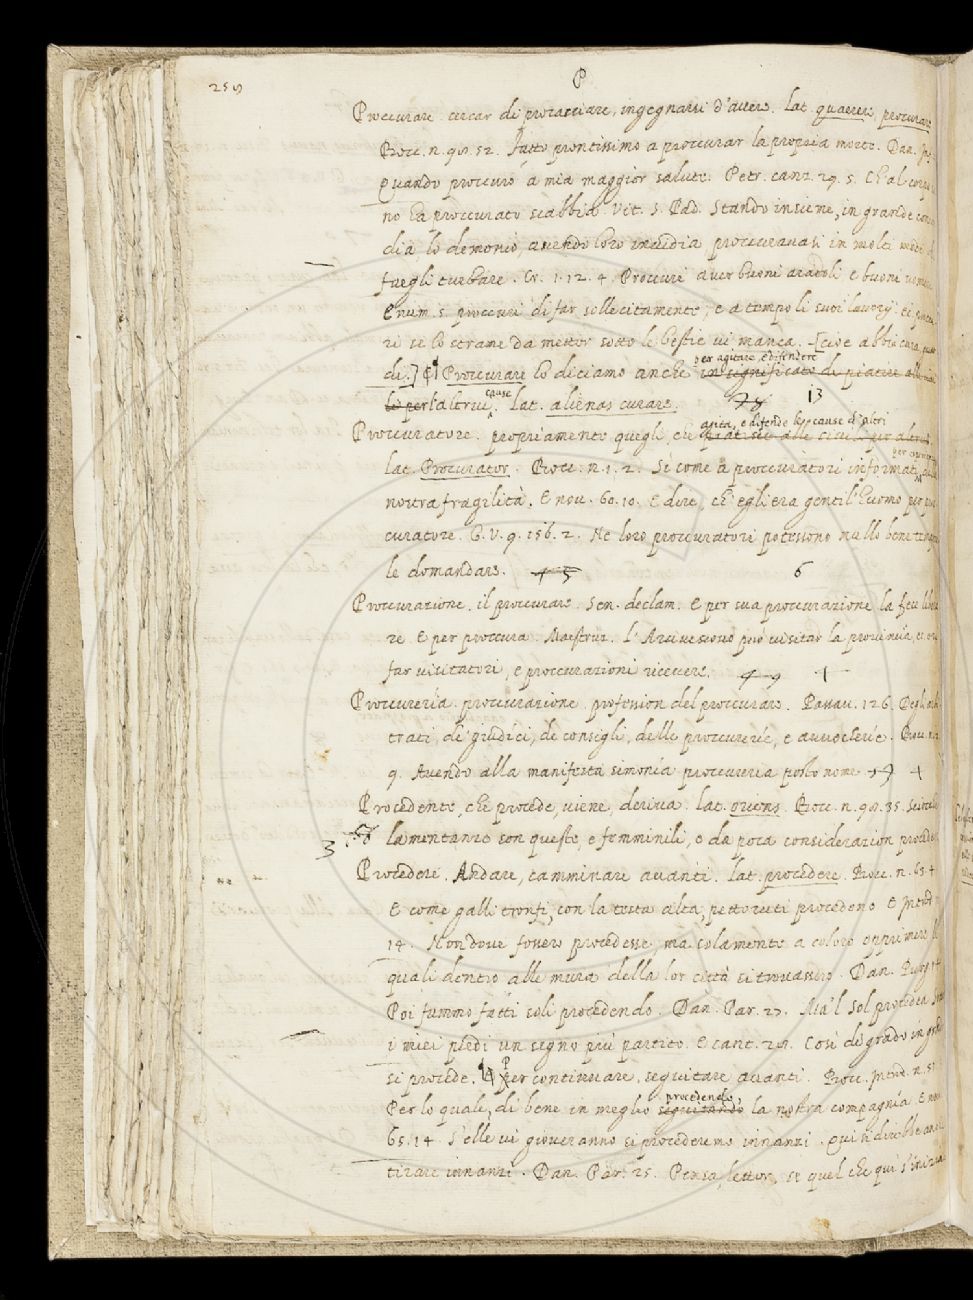 259
P
Proccurare. cercar di procacciare, ingegnarsi d'avere. Lat. quaerere, procurare
Bocc. n. 98. 52. Tutto prontissimo a proccurar la propria morte. Dan.
Quando proccurò a mia maggior salute. Petr. canz. 29. 5. Ch'al corpo
no ha proccurato scabbia. Vit. S. Pad. Stando insieme, in grande concor
dia lo demonio, avendo loro invidia, proccuravasi in molti modi di
fargli turbare. Cr. 1. 12. 4. Proccuri aver buoni aratoli e buone
E num. 5. proccuri di far sollecitamente, e a tempo li suoi lavorij.
re se lo strame da metter sotto le bestie vi manca. [cioè abbia cura,
di.] ¶ Proccurare lo diciamo anche per agitare, e difendere in significato di piatire
le per l'altrui cause. Lat. alienas curare. 78 13
Proccuratore. propriamente quegli, che agita, e difende le cause d'altri piatisce alle civili per altrui
Lat. Procurator. Bocc. n. 1. 2. Sì come a proccuratori informati per
nostra fragilità. E nov. 60. 10. E dire, ch'egli era gentil'huomo per pro
curatore. G. V. 9. 156. 2. Ne loro proccuratori potessono nullo bene
le domandare. 45 6
Proccurazione. il proccurare. Sen. declam. E per sua proccurazione la feci
re E per proccura. Maestruz. L'Arcivescovo può visitar la provincia,
far visitatori, e proccurazioni ricevere. 49 +
Proccureria. proccurazione. profession del proccurare. Passav. 126. Degli
trati, de' giudici, de consigli, delle proccurerie, e avvocherie. Bocc. n.
9. Avendo alla manifesta simonia proccureria posto nome 19 +
Procedente, che procede, viene, deriva. Lat. oriens. Bocc. n. 98. 35.
3 58 lamentanze son queste, e femminili, e da poca considerazion procedenti
Procedere. Andare, camminare avanti. Lat. procedere. Bocc. n. 65. 4
E come galli tronfi, con la testa alta, pettoruti procedono E
14. Non dove fossero procedesse, ma solamente a coloro opprimere
quali dentro alle mura della lor città si trovassero. Dan. Purg. 14
Poi fummo fatti soli procedendo. Dan. Par. 27. Ma'l Sol procedea
i miei piedi un segno più partito. E cant. 28. Così di grado in grado
si procede. ¶ Per continuare, seguitare avanti. Bocc. Introd. n. 51
Per lo quale, di bene in meglio procedendo, seguitando la nostra compagnia E nov.
65. 14. S'elle vi gioveranno si procederemo innanzi. Qui si direbbe anche
tirare innanzi. Dan. Par. 25. Pensa, lettor, se quel che qui s'inizia